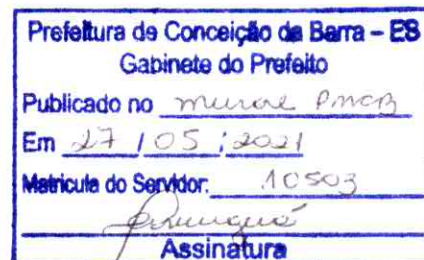 Prefeitura de Conceição da Barra – ES
Gabinete do Prefeito
Publicado no mural PMCB
Em 27 / 05 / 2021
Matricula do Servidor: 10503
Assinatura